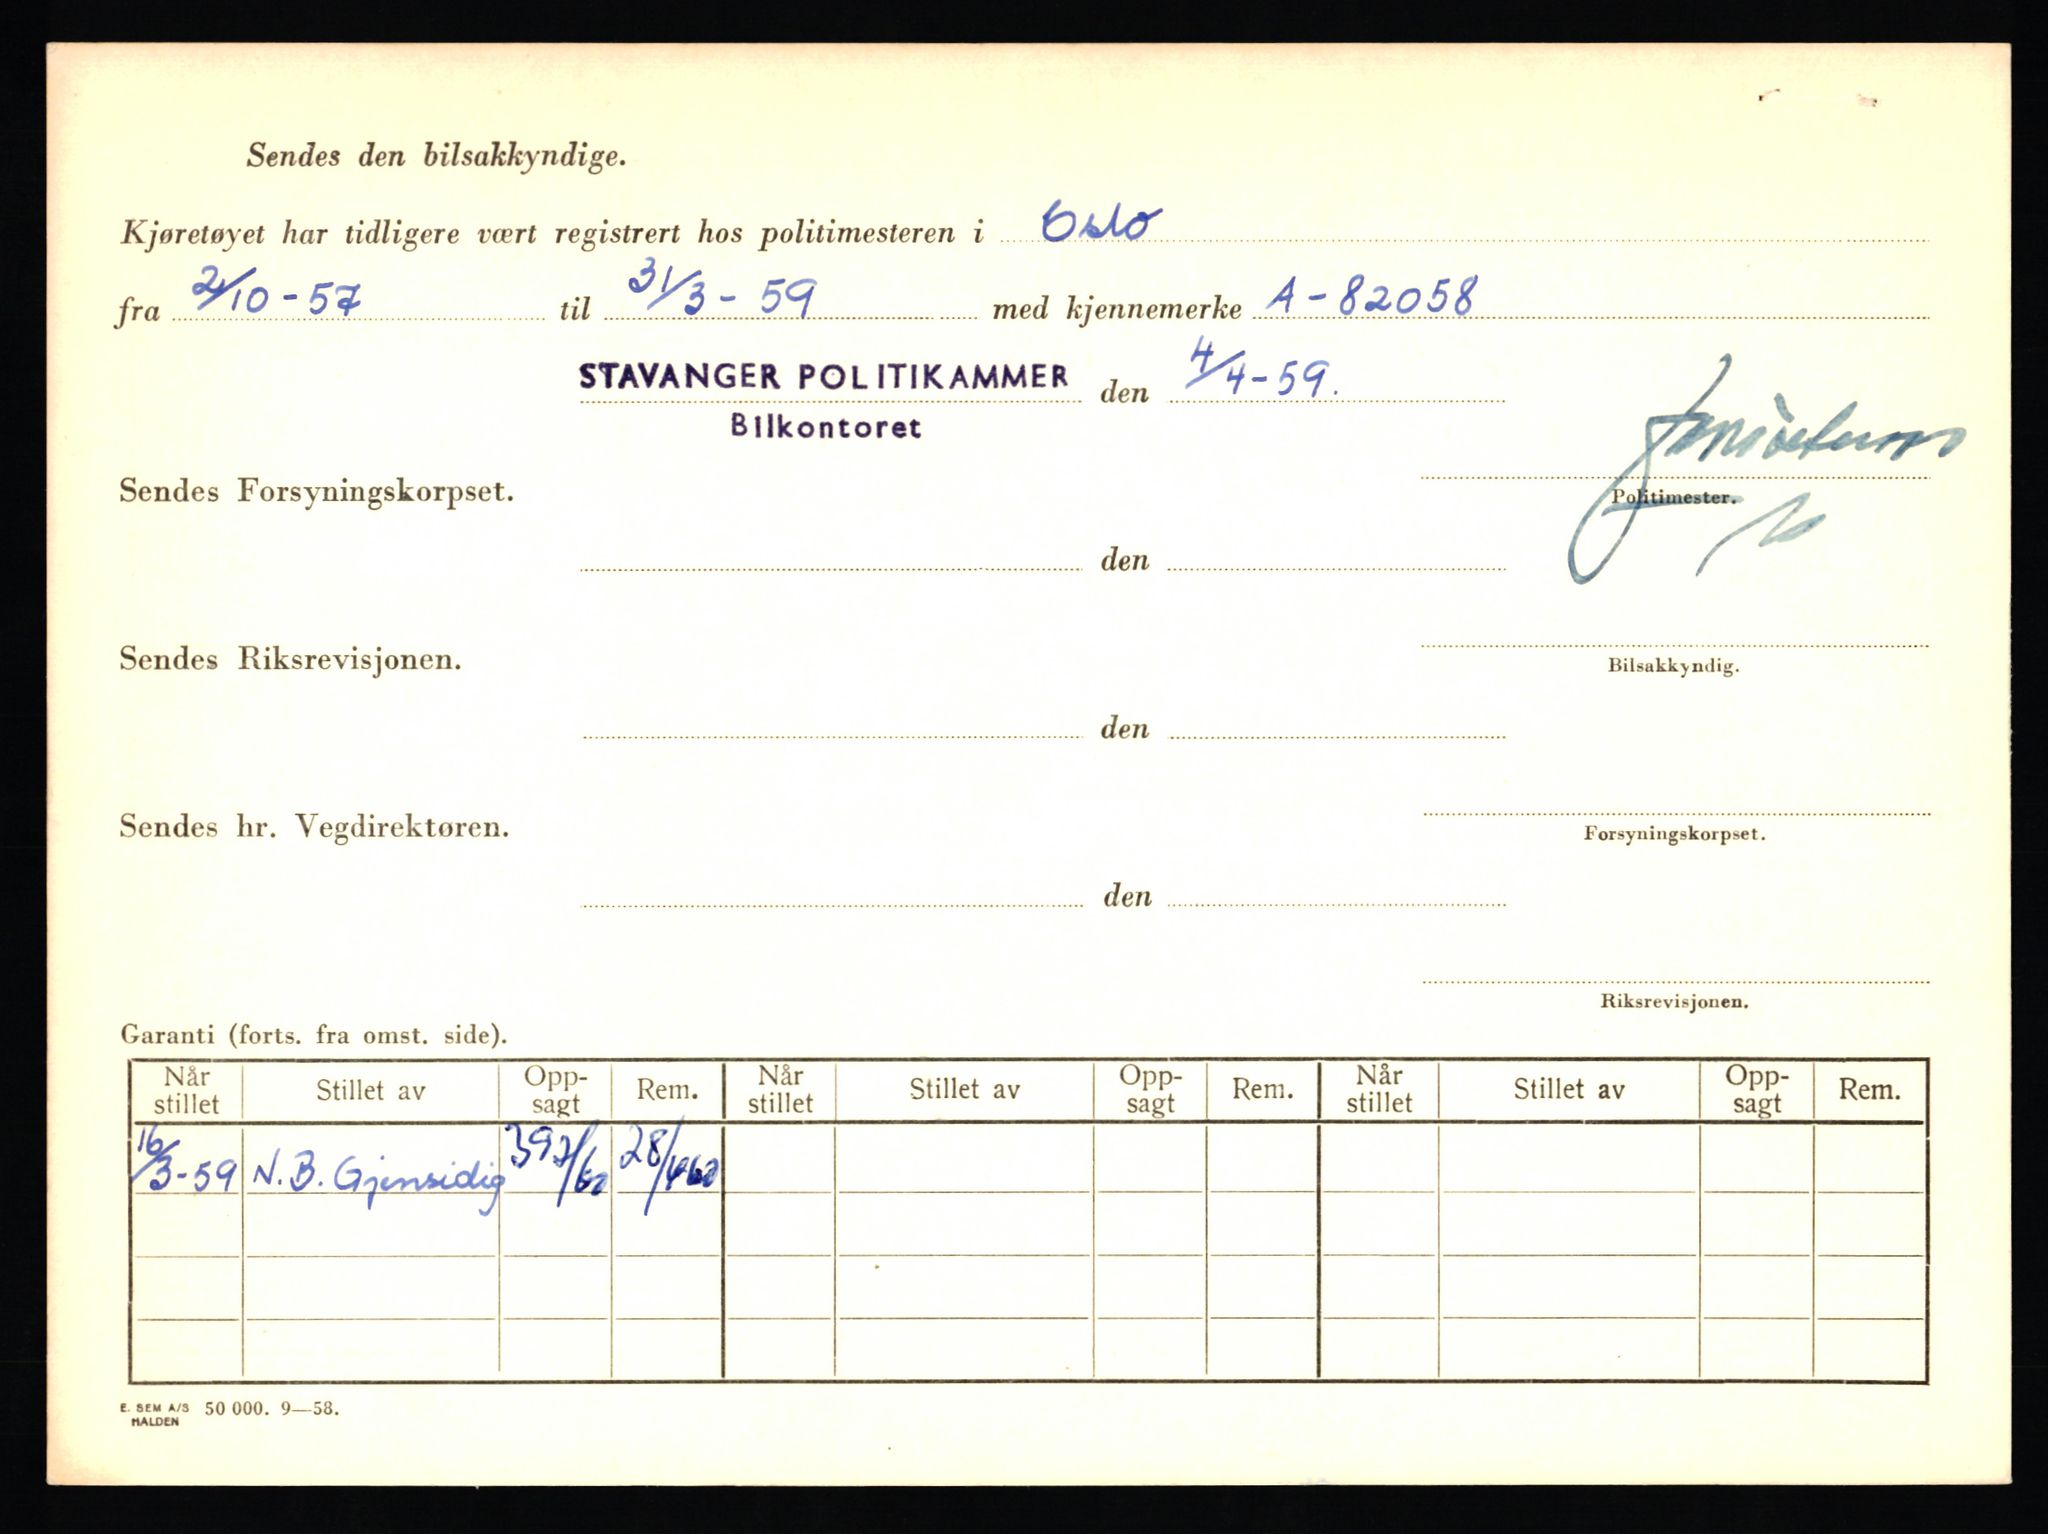 Sendes den bilsakkyndige.
Kjøretøyet har tidligere vært registrert hos politimesteren i Oslo
fra 2/10-57 til 31/3-59 med kjennemerke A-82058
STAVANGER POLITIKAMMER den 4/4-59.
Bilkontoret
Sendes Forsyningskorpset.
Politimester.
den
Sendes Riksrevisjonen.
Bilsakkyndig.
den
Sendes hr. Vegdirektøren.
Forsyningskorpset.
den
Riksrevisjonen.
Garanti (forts. fra omst. side).
Når stillet Stillet av Opp-sagt Rem. Når stillet Stillet av Opp-sagt Rem. Når stillet Stillet av Opp-sagt Rem.
16/3-59 N.B. Gjensidig 28/4 60
E. SEM A/S 50 000. 9—58.
HALDEN